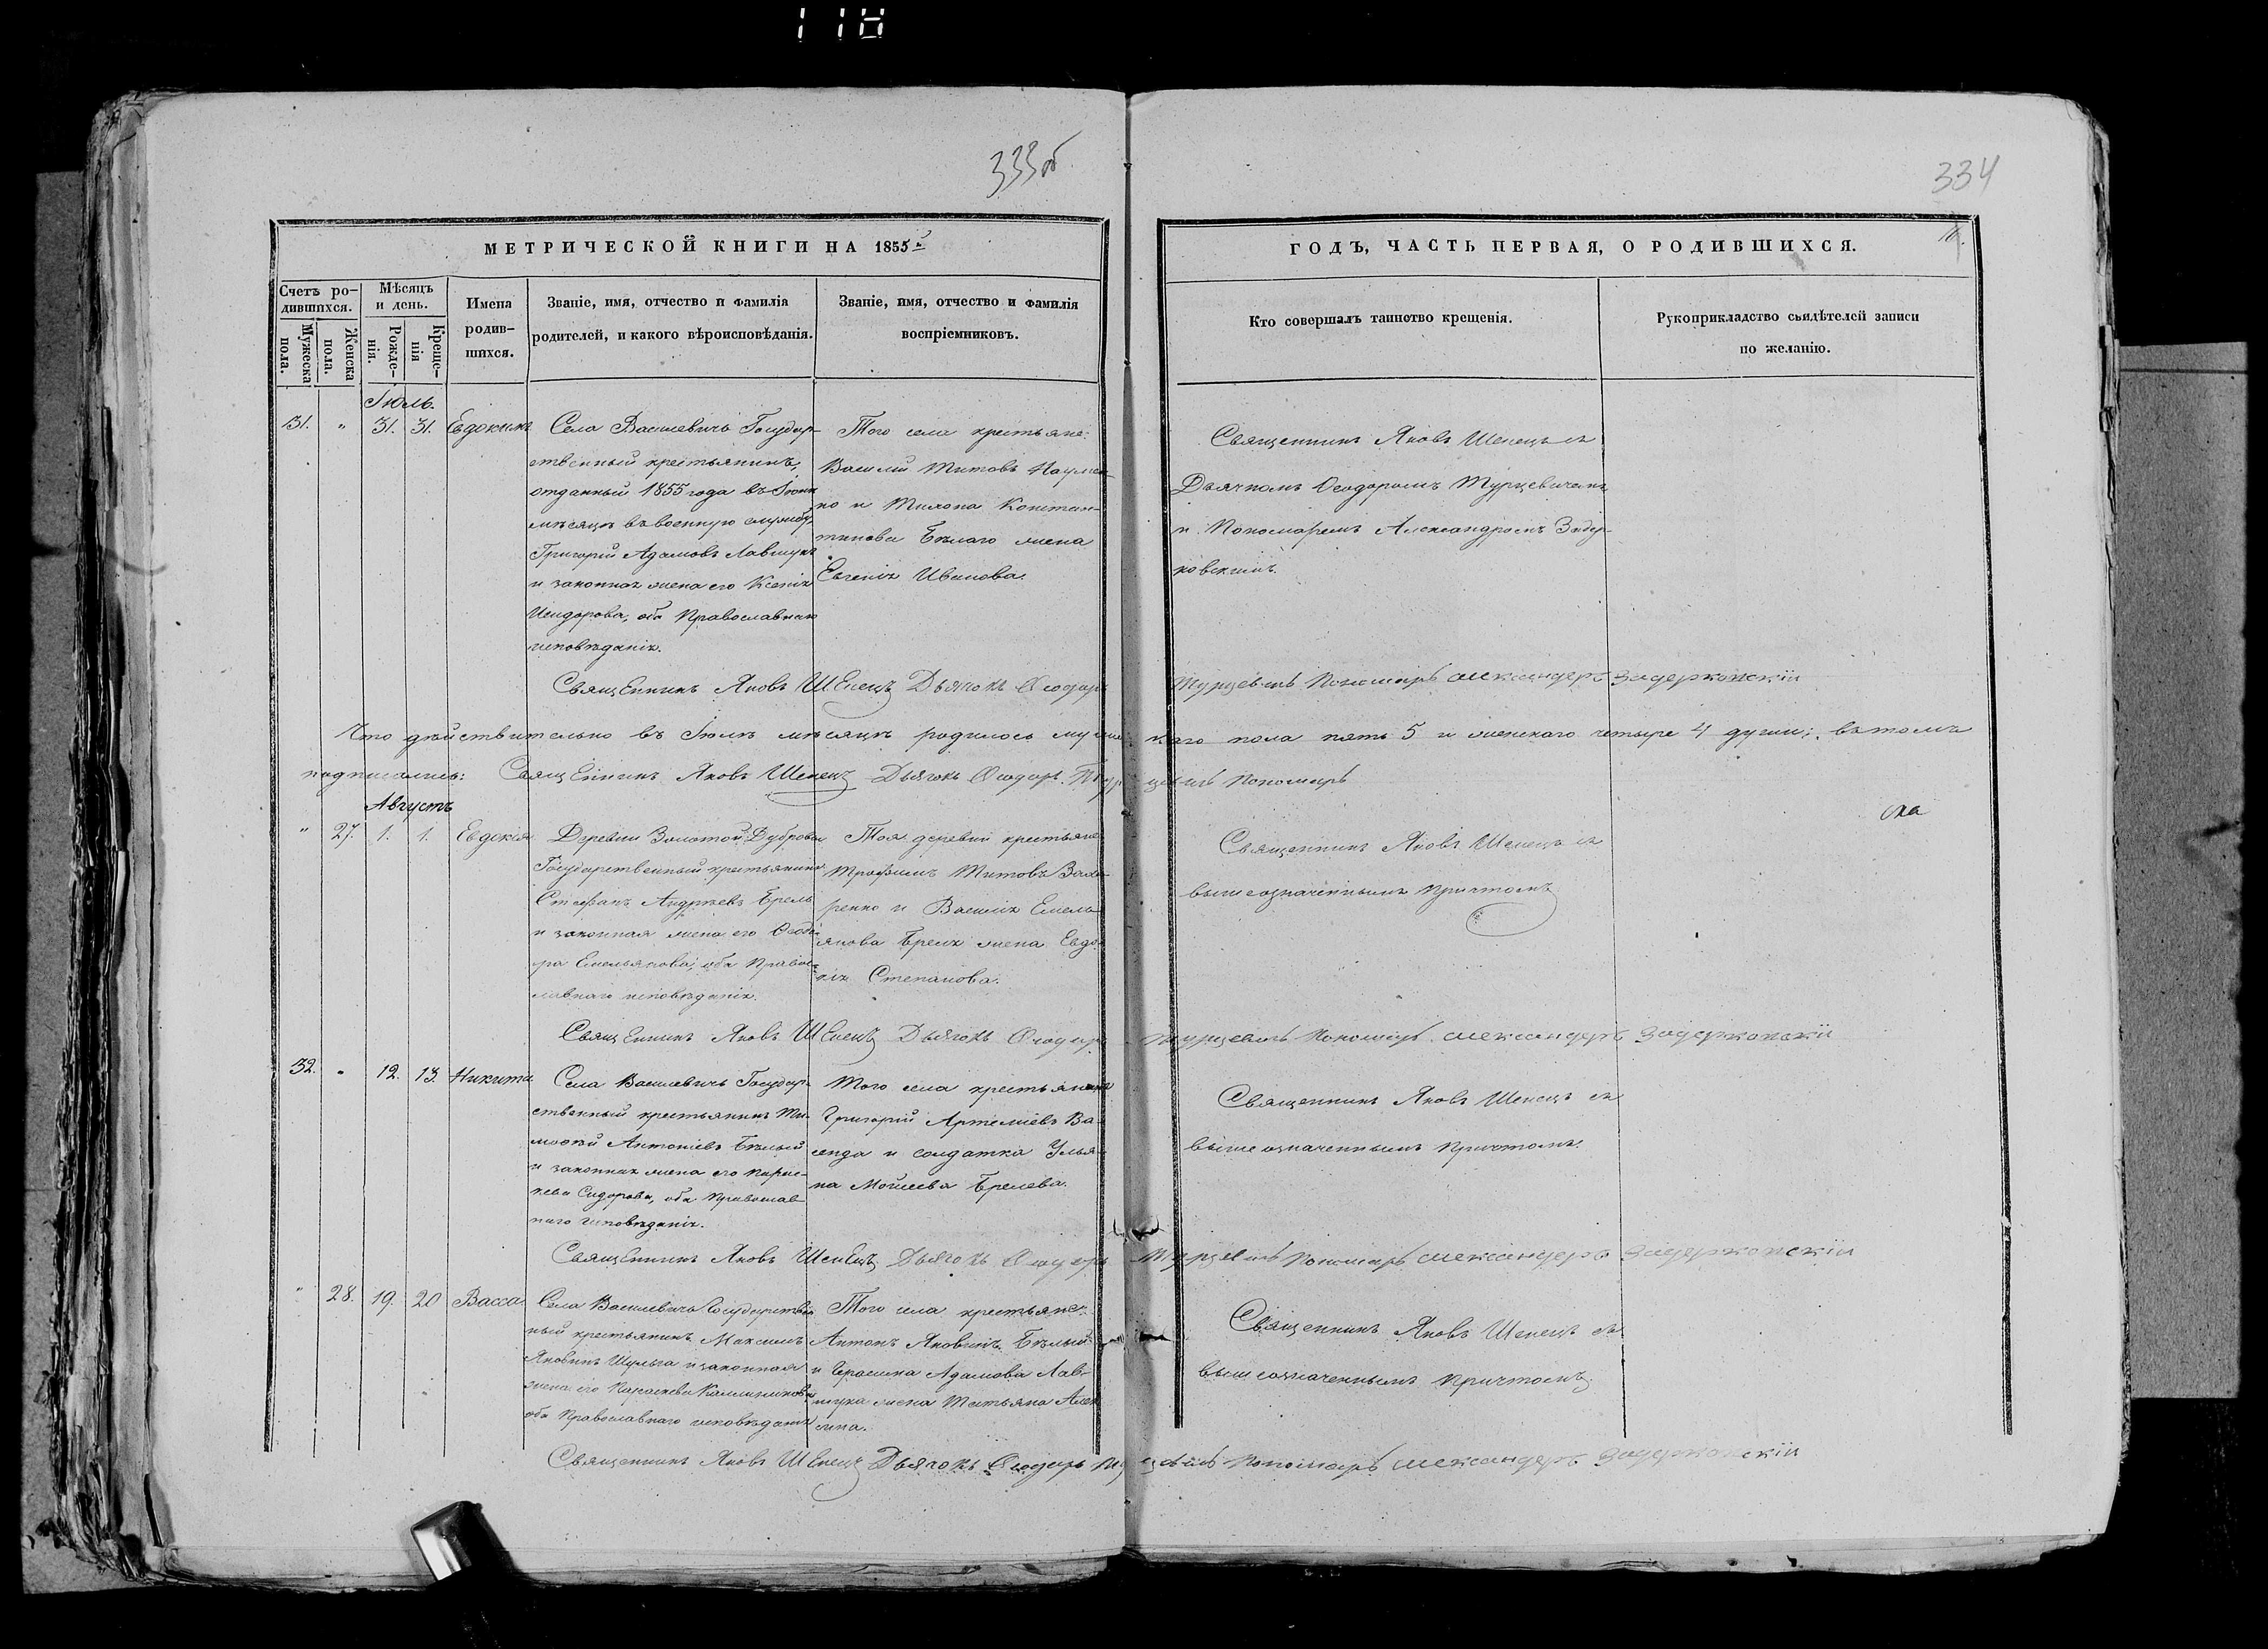 118
333об
334
МЕТРИЧЕСКОЙ КНИГИ НА 1855й
ГОДЪ, ЧАСТЬ ПЕРВАЯ, О РОДИВШИХСЯ.
Счетъ ро-
дившихся.
Мужеска
пола.
Женска
пола.
Мѣсяцъ
и день.
Рожде-
нія.
Креще-
нія
Имена
родив-
шихся.
Званіе, имя, отчество и фамилія
родителей, и какого вѣроисповѣданія.
Званіе, имя, отчество и фамилія
воспріемниковъ.
Кто совершалъ таинство крещенія.
Рукоприкладство свидѣтелей записи
по желанію.
Іюль.
31. " 31. 31. Евдокимъ
Села Василевичъ Государ-
ственный крестьянинъ,
отданный 1855 года въ Іюнѣ
мѣсяцѣ въ военную службу
Григорій Адамовъ Лавшукъ
и законная жена его Ксенія
Исидорова, оба Православнаго
исповѣданія.
Того села крестьяне:
Василій Титовъ Наумен-
ко и Констан-
тинова Бѣлаго жена
Евгенія Иванова.
Священникъ Яковъ Шепецъ съ
Дьячкомъ Ѳеодоромъ Турцевичемъ
и Пономаремъ Александромъ Задер-
ковскимъ.
Священникъ Яковъ Шепецъ Дьячокъ Ѳеодоръ Турцевичъ Пономарь Александеръ Задерковскій
Что дѣйствительно въ Іюлѣ мѣсяцѣ родилось мужескаго пола пять 5 и женскаго четыре 4 души; въ томъ
подписались: Священникъ Яковъ Шепецъ Дьячокъ Ѳеодоръ Турцевичъ Пономарь
Августъ
" 27. 1. 1. Евдокія
Деревни Золотой Дубровы
Государственный крестьянинъ
Стефанъ Андреевъ Брель
и законная жена его Ѳеодо-
ра Емельянова, оба Правос-
лавнаго исповѣданія.
Тоя деревни крестьяне
Трофимъ Титовъ Заха-
ренко и Василія Емель-
янова Бреля жена Евдо-
кія Степанова.
Священникъ Яковъ Шепецъ съ
вышеозначеннымъ Причтомъ
Священникъ Яковъ Шепецъ Дьячокъ Ѳеодоръ Турцевичъ Пономарь Александеръ Задерковскій
32. " 12. 13. Никита
Села Василевичъ Государ-
ственный крестьянинъ Ти-
моѳей Антоніевъ Бѣлый
и законная жена его Парас-
кева Сидорова, оба Православ-
наго исповѣданія.
Того села крестьянинъ
Григорій Артеміевъ Ва-
и солдатка Улья-
на Мойсеева Брелева.
Священникъ Яковъ Шепецъ съ
вышеозначеннымъ Причтомъ.
Священникъ Яковъ Шепецъ Дьячокъ Ѳеодоръ Турцевичъ Пономарь Александеръ Задерковскій
" 28. 19. 20 Васса
Села Василевичъ Государствен-
ный крестьянинъ Максимъ
Яковинъ Шульга и законная
жена его Параскева Каллиникова
оба Православнаго исповѣданія
Того села крестьяне:
Антонъ Яковинъ Бѣлый
и Герасима Адамова Лав-
шука жена Татьяна
Священникъ Яковъ Шепецъ съ
вышеозначеннымъ Причтомъ
Священникъ Яковъ Шепецъ Дьячокъ Ѳеодоръ Турцевичъ Пономарь Александеръ Задерковскій